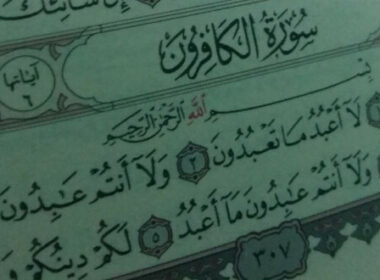 إِنَّ شَانِئَكَ
سُورَةُ الكَافِرُونَ
آيَاتُهَا
٦
بِسْمِ اللَّهِ الرَّحْمَنِ الرَّحِيمِ
لَا أَعْبُدُ مَا تَعْبُدُونَ ٢ وَلَا أَنتُمْ عَابِدُونَ
وَلَا أَنتُمْ عَابِدُونَ مَا أَعْبُدُ ٥ لَكُمْ دِينُكُمْ
٣٠٧